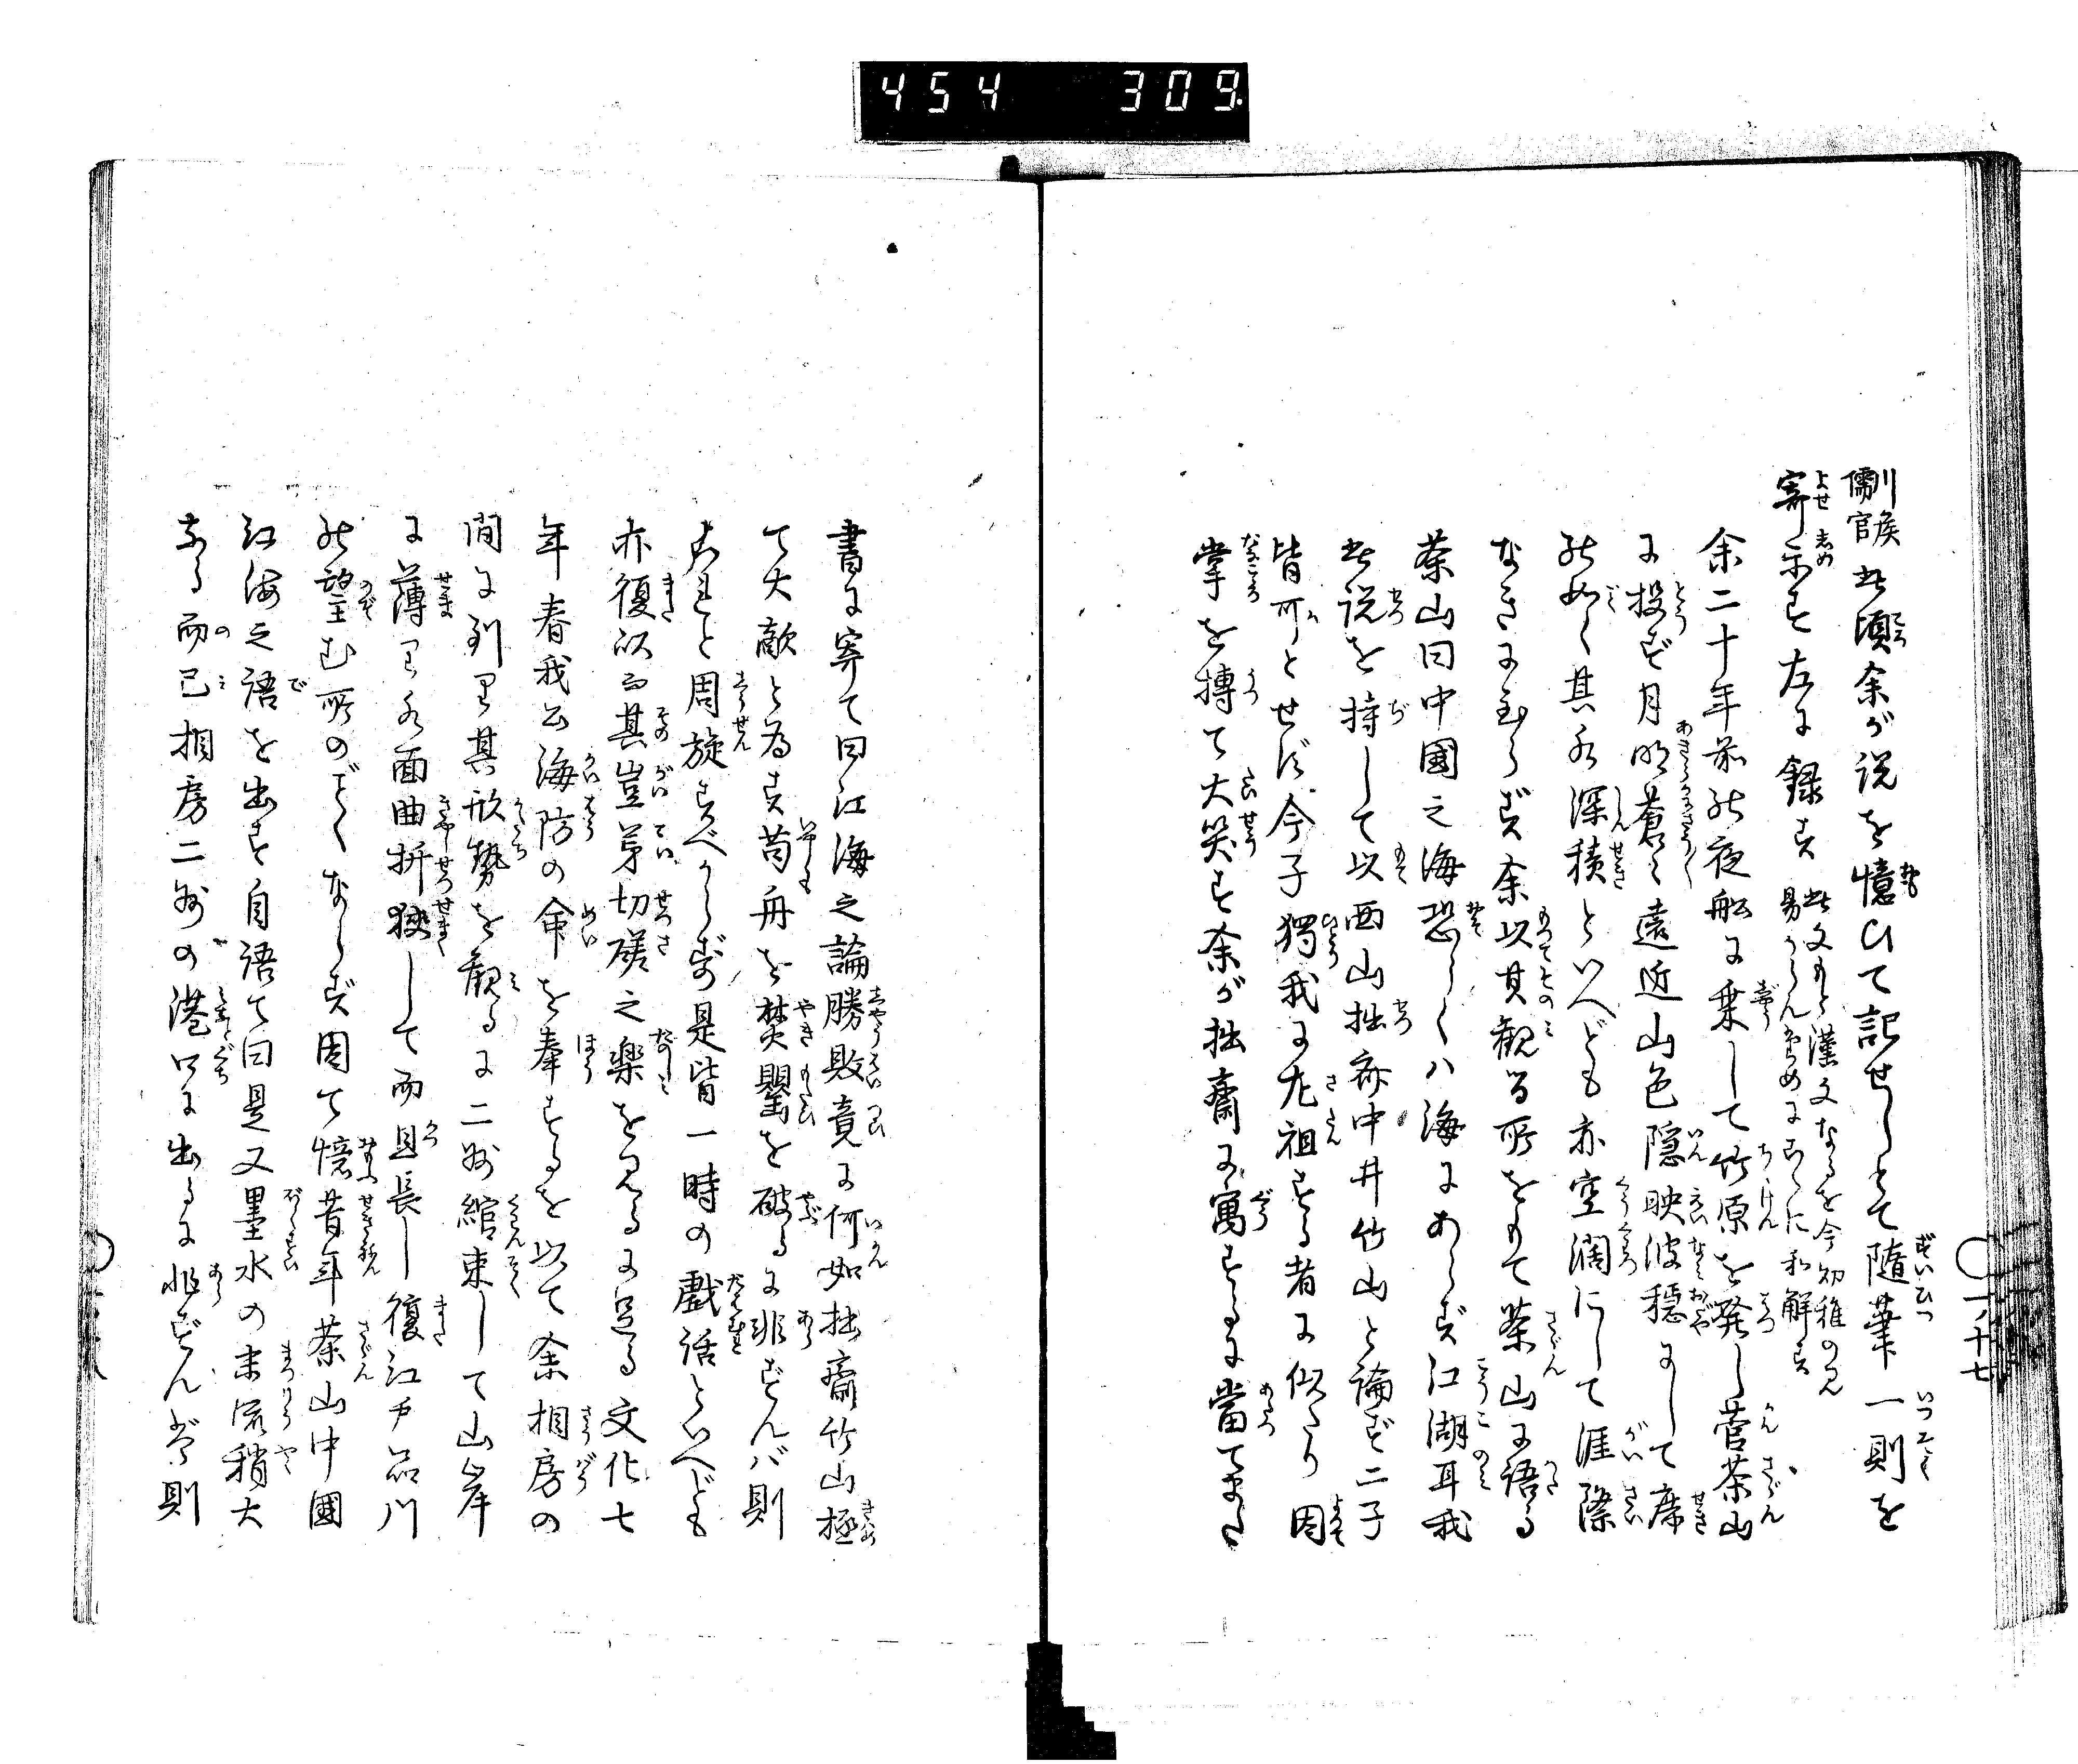 454 309
儒官 川侯 此頃余が説を憶ひて記せしとて随筆一則を
寄示す左に録す 此文もと漢文なるを今幼稚の見易からんためにこゝに和解す
余二十年前の夜船に乗して竹原を発し菅茶山
に投ず月明蒼々遠近山色隠映波穏にして席
の如く其水深積といへども亦空濶にして涯際
なきに至らず余以其観る所をもて茶山に語る
茶山曰中國之海恐らくハ海にあらず江湖耳我
此説を持して以西山拙斎中井竹山と論ず二子
皆可とせず今子獨我に左祖する者に似たり因
掌を搏て大笑す余が拙齋に寓するに當て
書に寄て曰江海之論勝敗竟に何如拙齋竹山極
て大敵と為す苟舟を焚甖を破るに非ずんバ則
これと周旋すべからず是皆一時の戯話といへども
亦復以其豈弟切磋之樂を見るに足る文化七
年春我公海防の命を奉するを以て余相房の
間に到り其形勢を観るに二州綰束して山岸
に薄り水面曲折狹して而且長し復江戸品川
の望む所のごとくならず因て憶昔年茶山中國
江海之語を出す自語て曰是又墨水の末流稍大
なる而已相房二州の港口に出るに非ずんば則